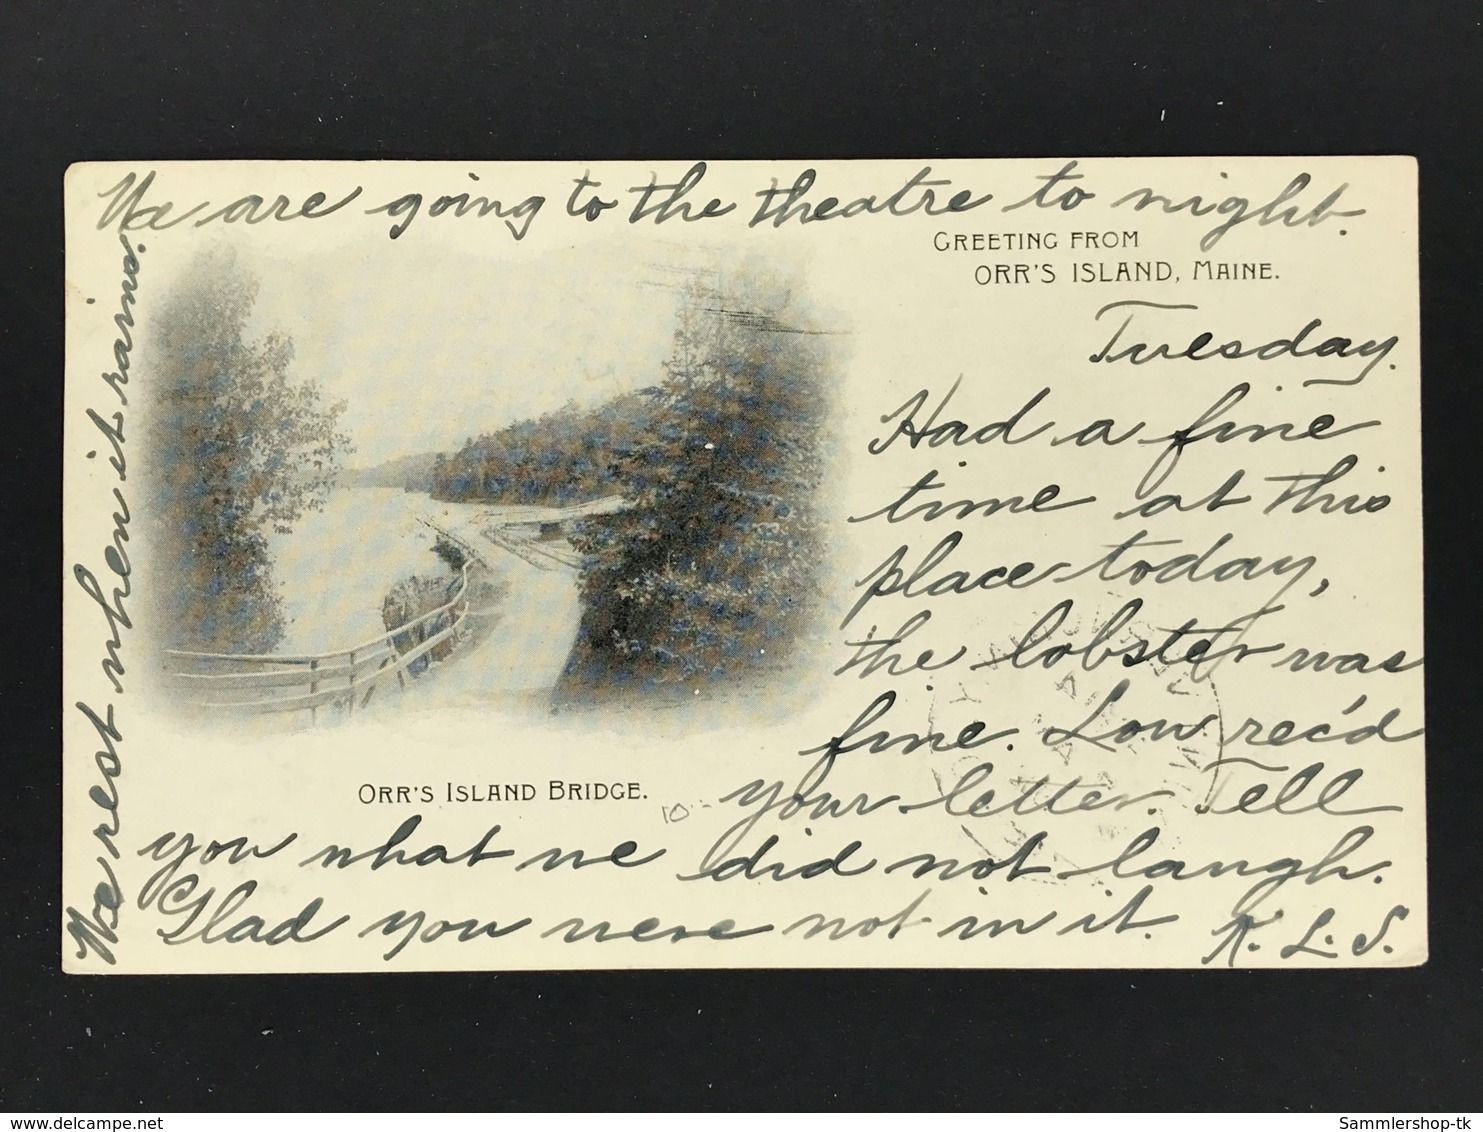 We are going to the theatre to night.
GREETING FROM
ORR'S ISLAND, MAINE.
Tuesday.
Had a fine
time at this
place today,
the lobster was
fine. Low rec'd
your letter. Tell
you what we did not laugh.
Glad you were not in it. K. L. S.
We rest when it rains.
ORR'S ISLAND BRIDGE.
10-
delcampe.net
Sammlershop-tk